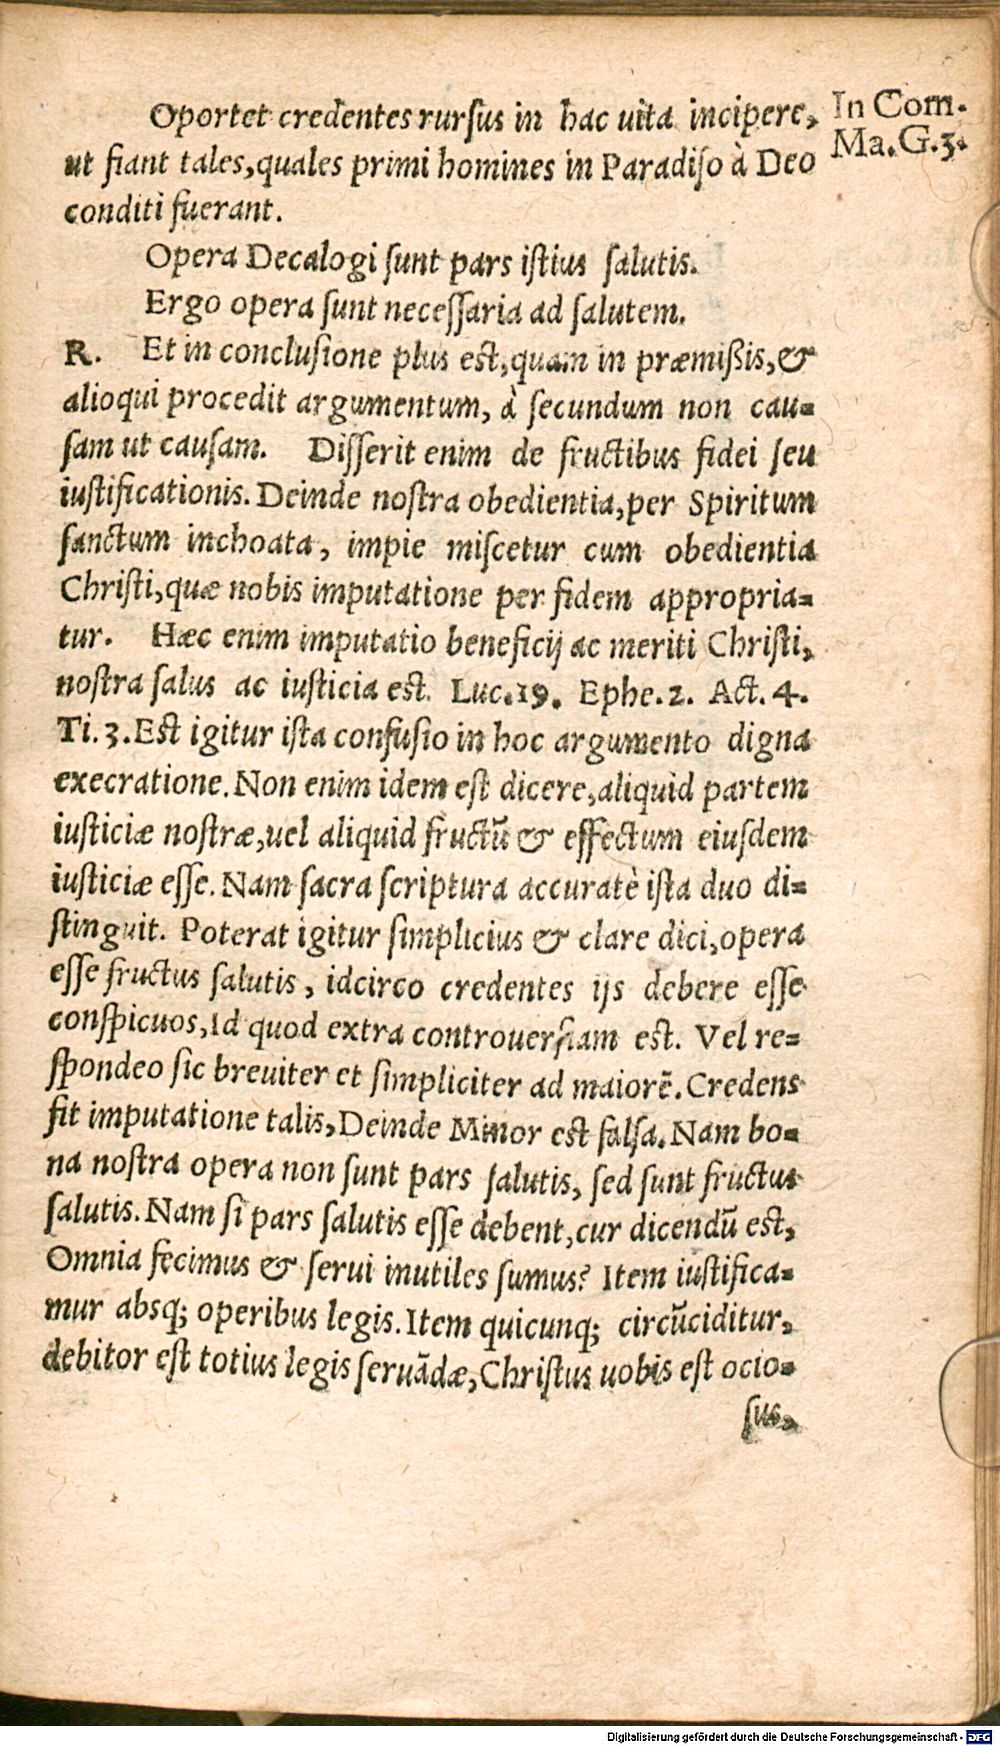 Oportet credentes rursus in hac uita incipere,
In Com.
Ma. G. 3.
ut fiant tales, quales primi homines in Paradiso à Deo
conditi fuerant.
Opera Decalogi sunt pars istius salutis.
Ergo opera sunt necessaria ad salutem.
R. Et in conclusione plus est, quam in præmißis, &
alioqui procedit argumentum, à secundum non cau-
sam ut causam. Disserit enim de fructibus fidei seu
iustificationis. Deinde nostra obedientia, per Spiritum
sanctum inchoata, impie miscetur cum obedientia
Christi, quæ nobis imputatione per fidem appropria-
tur. Hæc enim imputatio beneficij ac meriti Christi,
nostra salus ac iusticia est. Luc. 19. Ephe. 2. Act. 4.
Ti. 3. Est igitur ista confusio in hoc argumento digna
execratione. Non enim idem est dicere, aliquid partem
iusticiæ nostræ, uel aliquid fructũ & effectum eiusdem
iusticiæ esse. Nam sacra scriptura accuratè ista duo di-
stinguit. Poterat igitur simplicius & clare dici, opera
esse fructus salutis, idcirco credentes ijs debere esse
conspicuos, id quod extra controuersiam est. Vel re-
spondeo sic breuiter et simpliciter ad maiorẽ. Credens
fit imputatione talis, Deinde Minor est falsa. Nam bo-
na nostra opera non sunt pars salutis, sed sunt fructus
salutis. Nam si pars salutis esse debent, cur dicendũ est,
Omnia fecimus & serui inutiles sumus? Item iustifica-
mur absq; operibus legis. Item quicunq; circũciditur,
debitor est totius legis seruãdæ, Christus uobis est ocio-
sus,
Digitalisierung gefördert durch die Deutsche Forschungsgemeinschaft - DFG